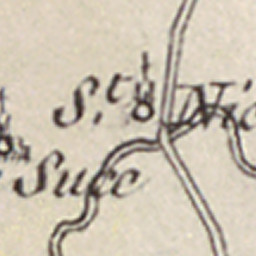 S.t Nic
Succ